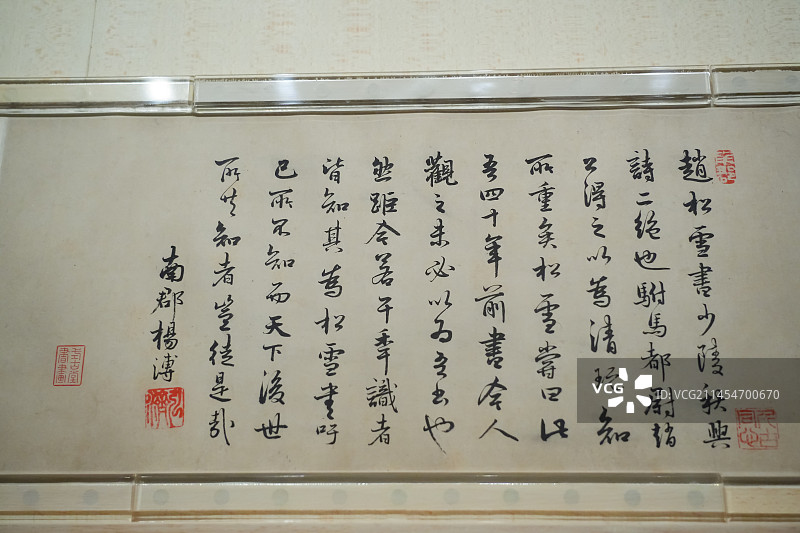 趙松雪書少陵秋興
詩二絕也駙馬都尉趙
公得之以為清玩知
所重矣松雪嘗曰此
吾四十年前書今人
觀之未必以為吾書也
然距今若干年識者
皆知其為松雪書吁
己所不知而天下後世
所共知者豈徒是哉
南郡楊溥
VCG
VCG211454700670